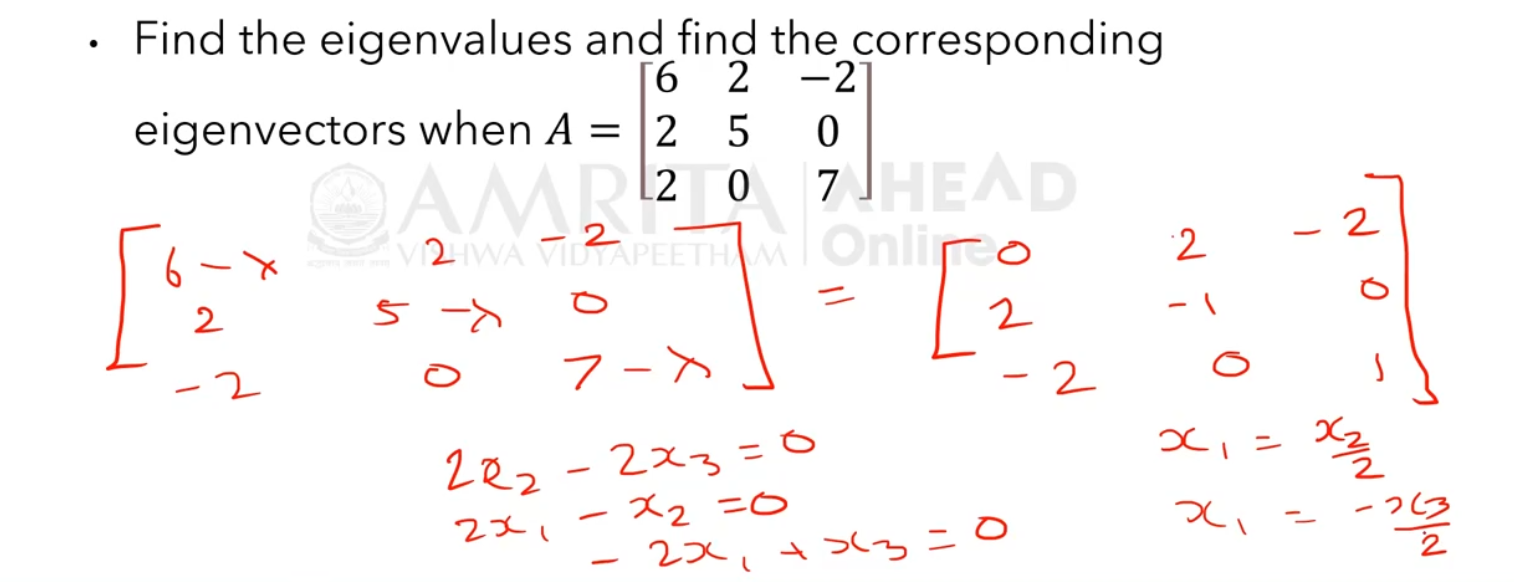 • Find the eigenvalues and find the corresponding
eigenvectors when A = [6 2 −2
2 5 0
2 0 7]
AMRITA | AHEAD
VISHWA VIDYAPEETHAM | Online
[6 − λ 2 − 2
2 5 − λ 0
− 2 0 7 − λ]
=
[0 2 − 2
2 − 1 0
− 2 0 1]
2x₂ − 2x₃ = 0
2x₁ − x₂ = 0
− 2x₁ + x₃ = 0
x₁ = x₂/2
x₁ = − x₃/2